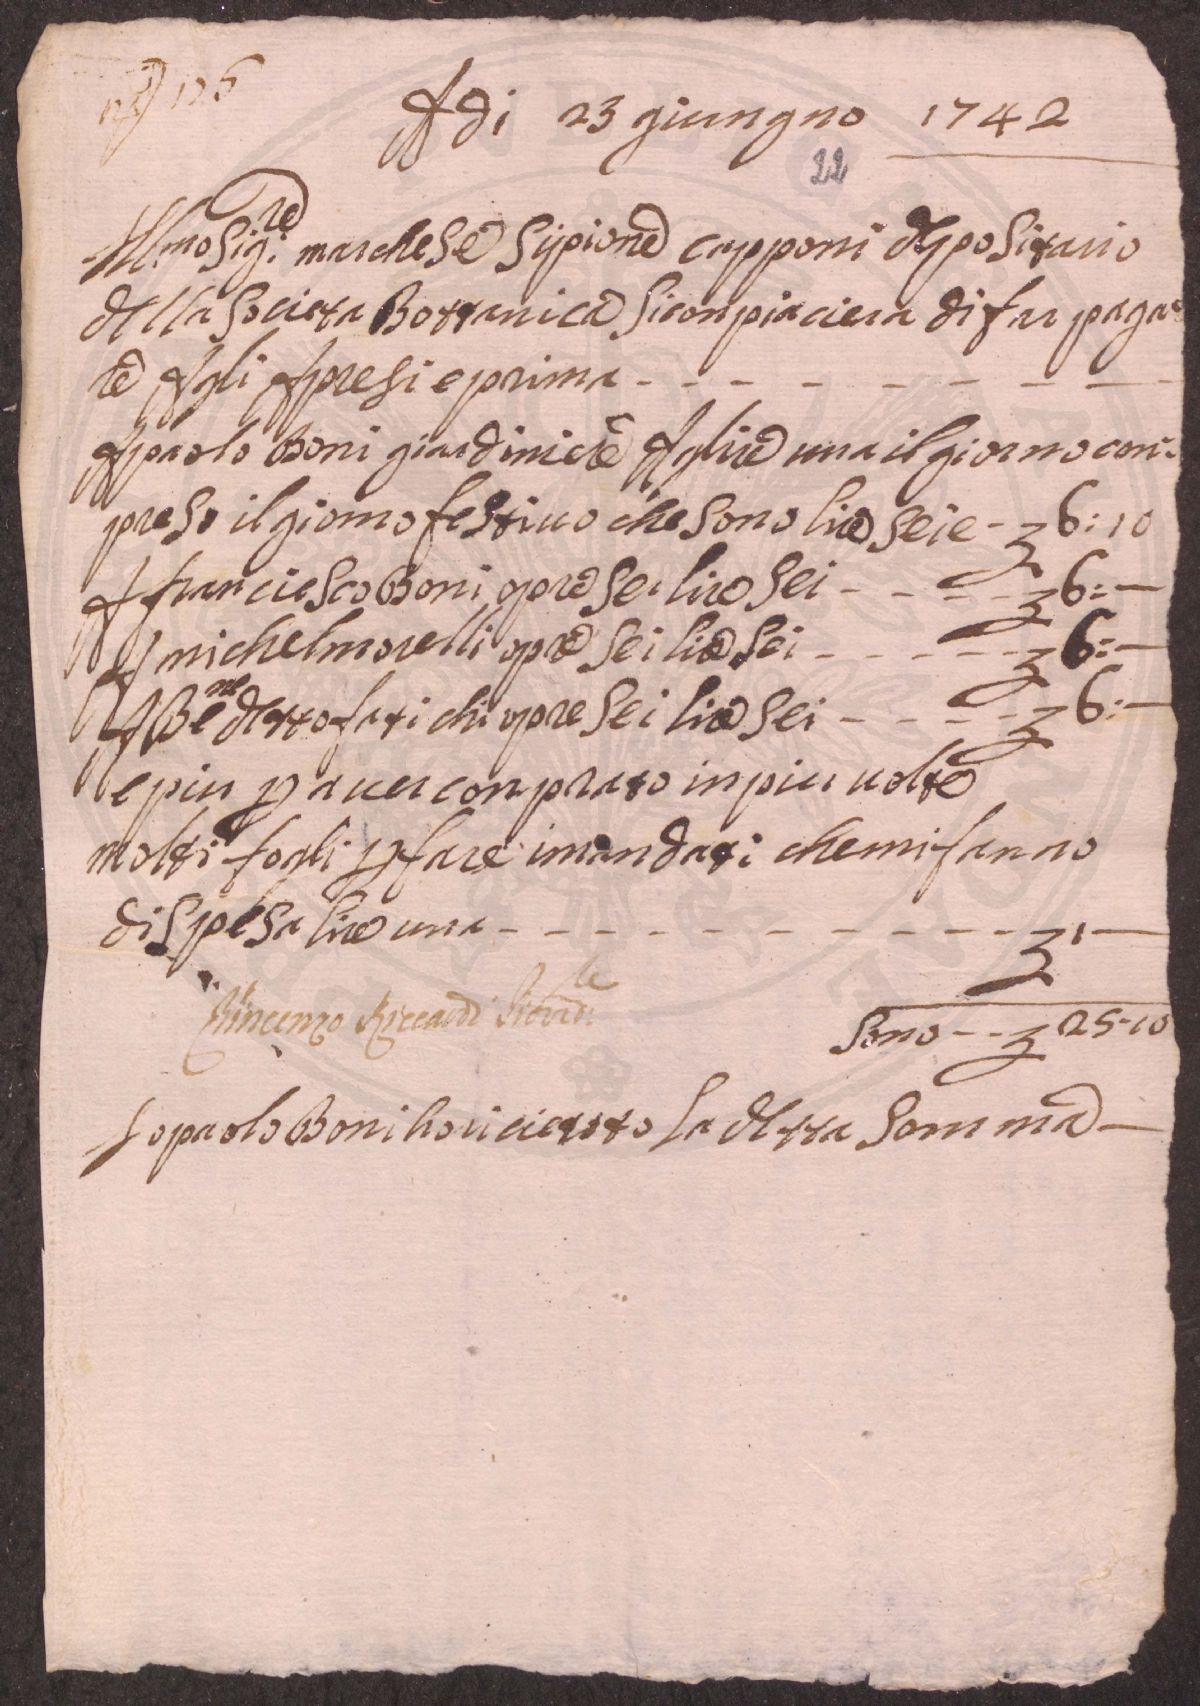 125
Adi 23 giungno 1742
22
Ill.mo Sig.re marchese Sipione capponi deposi­tario
della Societa Bottanica Si conpiaciera di far paga
re Agli Apresi e prima
A paolo Boni giardiniere A lire una il giorno con
preso il giorno festivo che sono lire seie - 6:10
A franciesco Boni opre sei lire sei - 6:—
A michel morelli opre sei lire sei - 6:—
A Benedetto fati chi opre sei lire sei - 6:—
e piu p aver conprato in piu volte
molti fogli p fare i mandati che mi fanno
di spesa lire una - 1—
Vincenzo Riccardi
Sono -- 25-10
Io paolo Boni ho riceiuto la detta Somma —